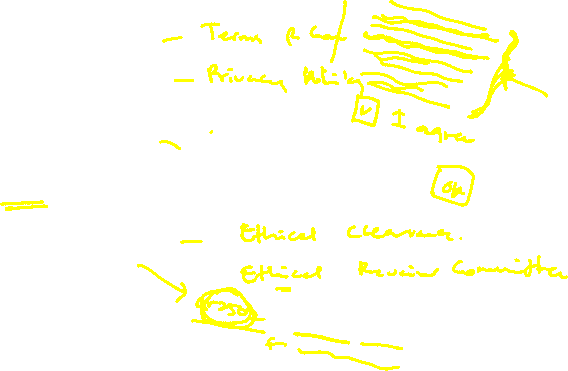 - Terms & Con
- Privacy Policy
I agree
OK
- Ethical Clearance.
Ethical Review Committee
for